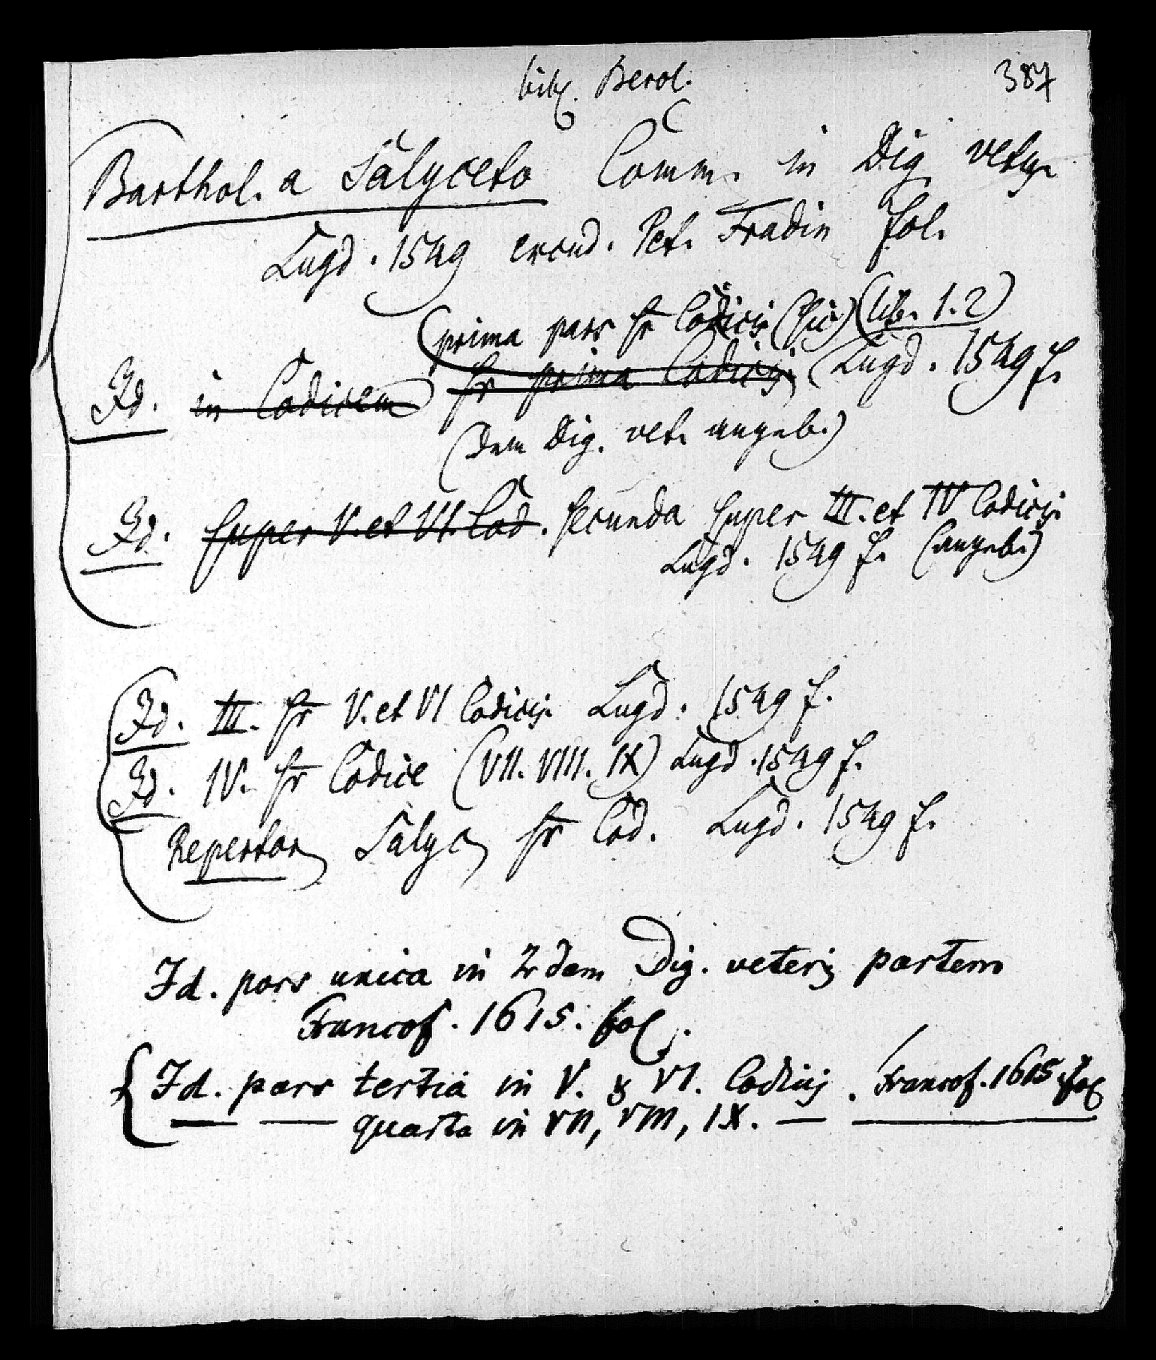 bibl. Berol.
387
Barthol. a Salyceto Comm. in Dig. vetus
Lugd. 1549 excud. Pet. Fradin fol.
(prima pars sr Codicis (sic) (lib. 1. 2)
Id. in Codicem sr prima Codicis Lugd. 1549 f.
(dem Dig. vet. angeb.)
Id. super V. et VI. Cod. secunda super III. et IV Codicis
Lugd. 1549 f. (angeb.)
Id. III. sr V. et VI Codicis Lugd. 1549 f.
Id. IV. sr Codice (VII. VIII. IX) Lugd. 1549 f.
Repertor Salyc sr Cod. Lugd. 1549 f.
Id. pars unica in 2dam Dig. veteris partem
Francof. 1615. fol.
Id. pars tertia in V. & VI. Codicis. Francof. 1615. fol
— — quarta in VII, VIII, IX. — —